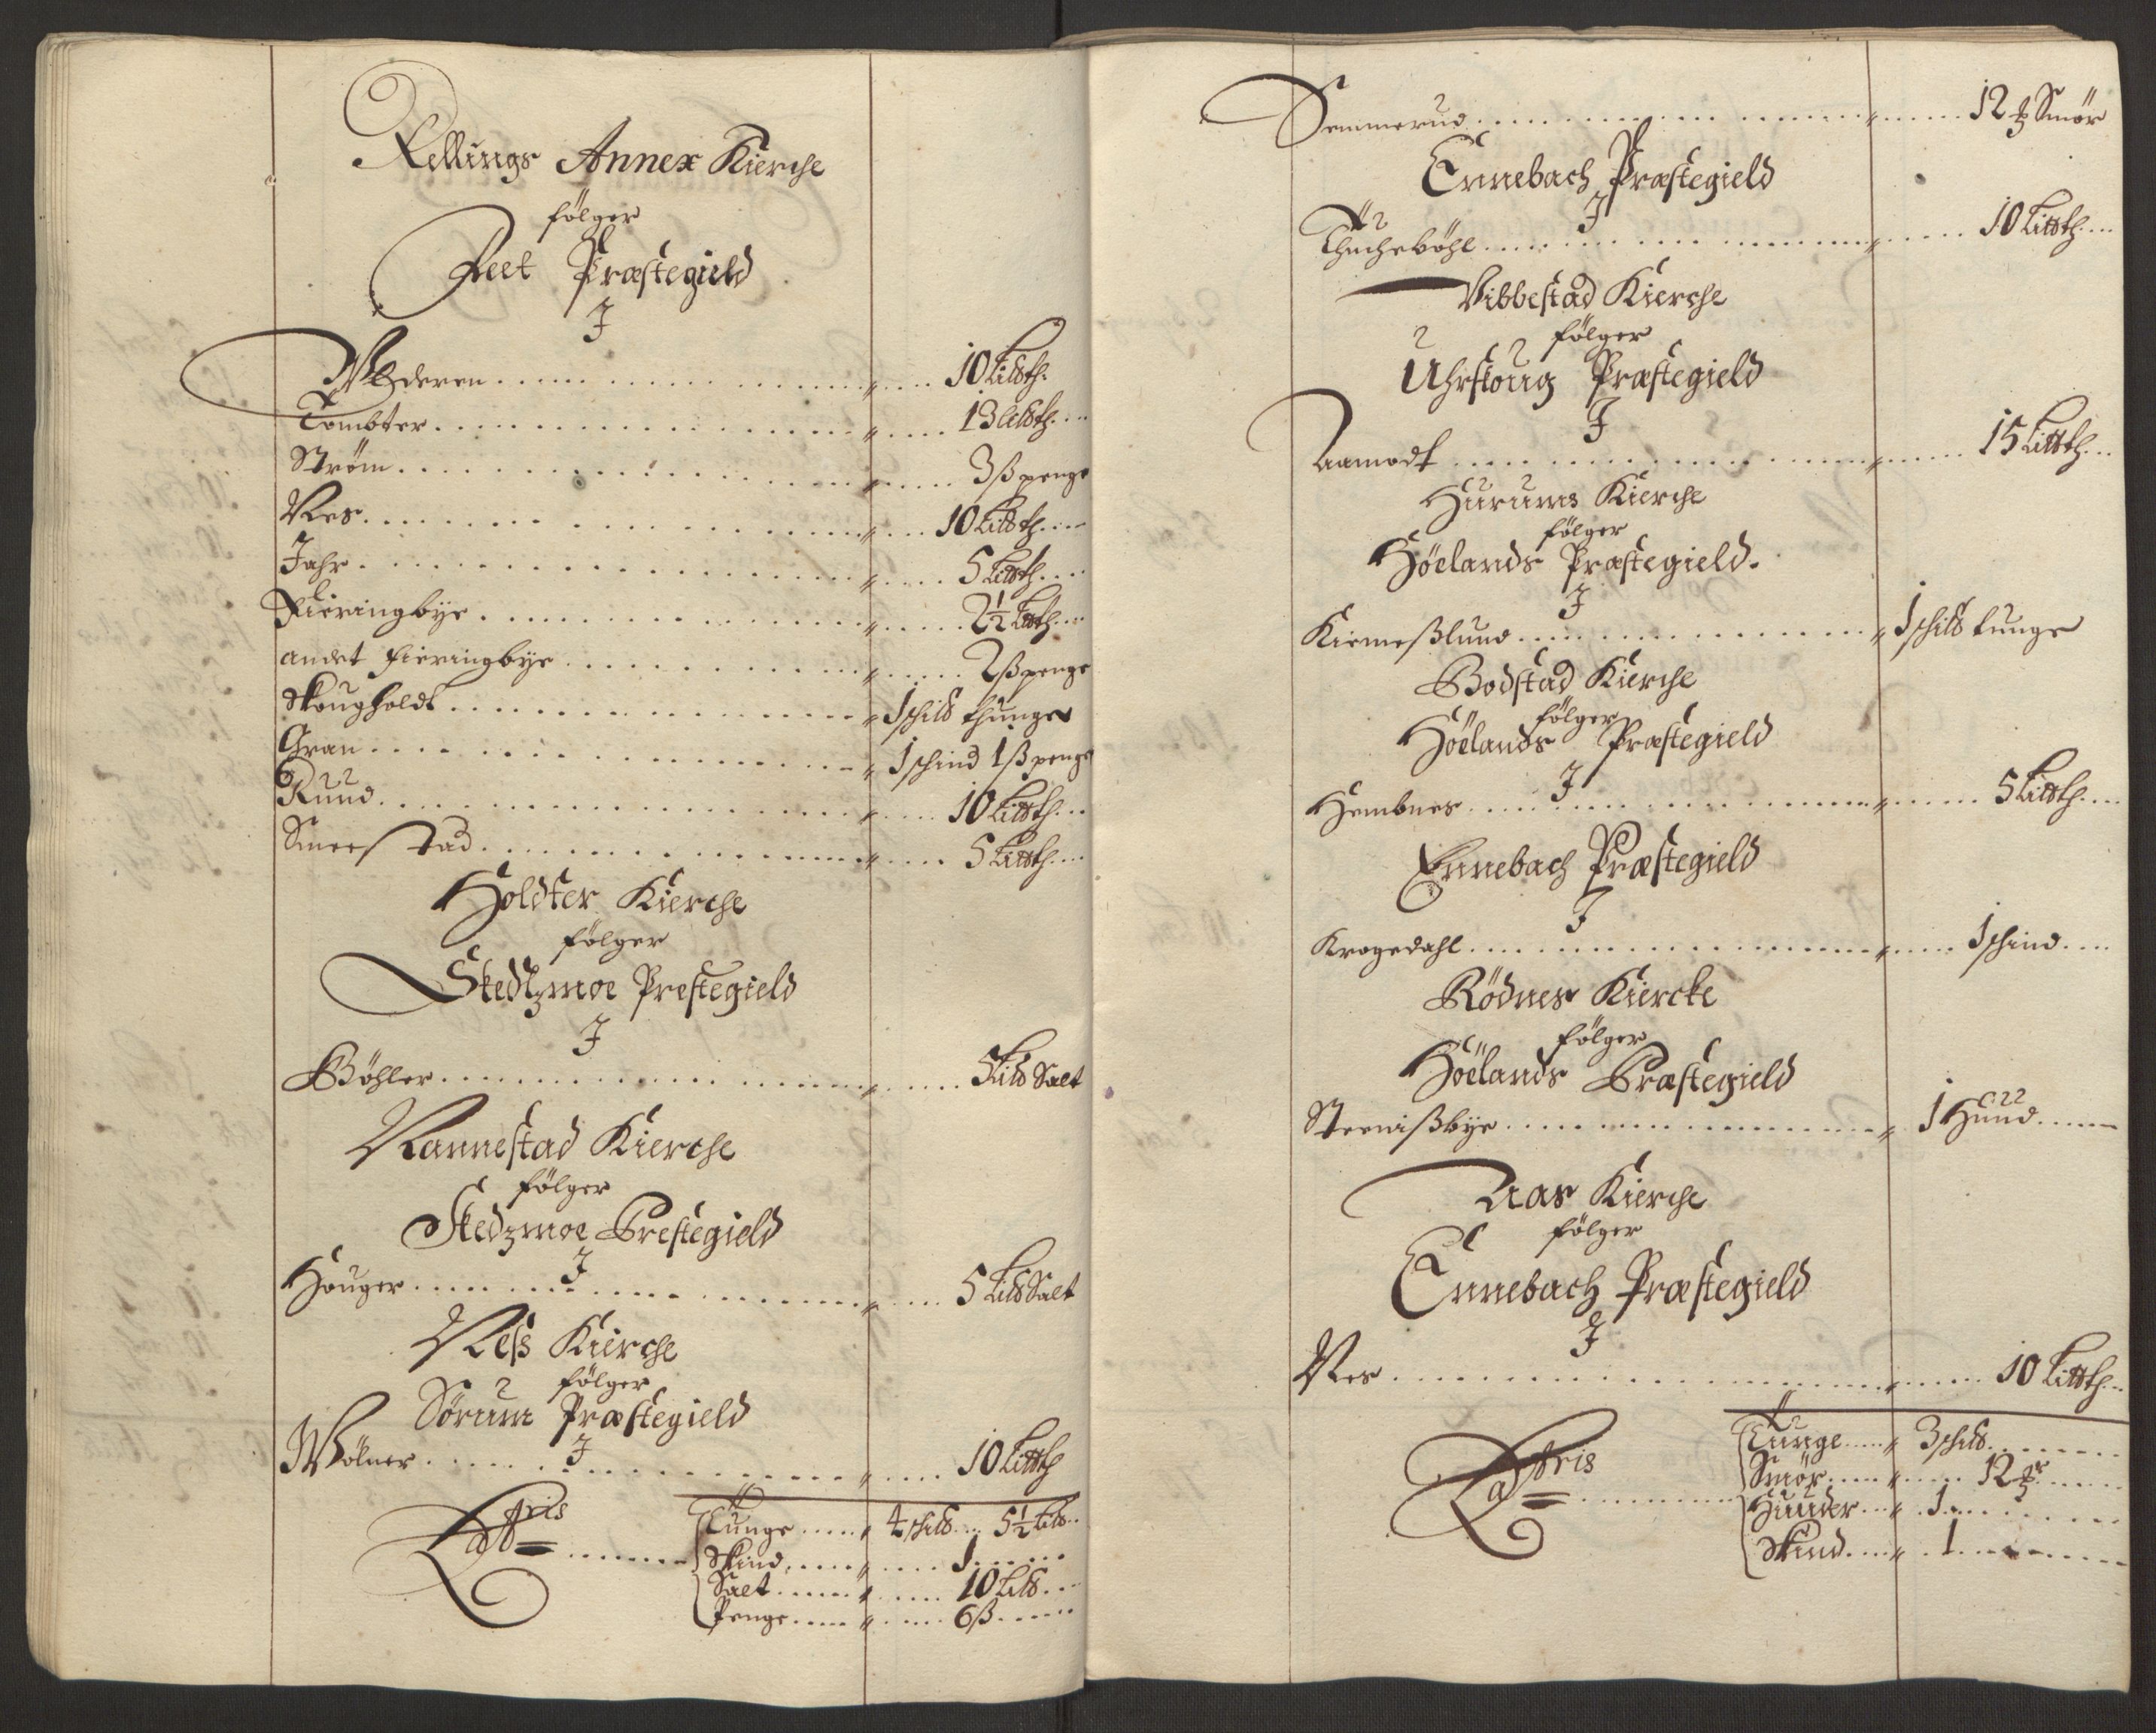 Rellings Annex Kierche
følger
Feet Præstegield
J
Wederen . . . . . " . . . 10 Lisβth.
Tombter . . . . . " . . . 13 Lisβth. . .
Strøm . . . . . " . . . 3 ß penge
Nes . . . . . " . . . 10 Lisβth. . .
Jahr . . . . . " . . . 5 Lisβth. . .
Fieringbye . . . . . " . . . 2½ Lisβth. . .
andet fieringbye . . . . . " . . . 2 ß penge
Skougholdt . . . . . " 1 schild thunge
Gran . . . . . " 1 schind 1 ß penge
Ruud . . . . . " . . . 10 Lisβth. . .
Smestad . . . . . " . . . 5 Lisβth. . .
Holdter Kierche
følger
Skedtzmoe Prestegield
J
Bøhler . . . . . " . . . 5 Lisβ Salt
Nannestad Kierche
følger
Skedzmoe Prestegield
J
Houger . . . . . " . . . 5 Lisβ Salt
Neß Kierche
følger
Sørum Præstegield
J
Wølner . . . . . " . . . 10 Lisβth
Lattris . . . Tunge . . . " 4 schild . . 5½ Lisβ . .
Skind . . . " . . . 1 . . .
Salt . . . " . . . 10 Lisβ . . .
Penge . . . " . . . 6 ß . . .
Semmerud . . . . . " . . . 12 ℔ Smør
Ennebach Præstegield
J
Thuchebøhl . . . . . " . . . 10 Lisβth. . .
Vibbestad Kierche
følger
Uhrskoug Præstegield
J
Aamodt . . . . . " . . . 15 Lisβth. . .
Hurums Kierche
følger
Høelands Præstegield.
J
Kiemeßlund . . . . . " 1 schild tunge
Bodstad Kierche
følger
Høelands Præstegield
J
Hembnes . . . . . " . . . 5 Lisβth. . .
Ennebach Præstegield
J
Krogedahl . . . . . " . . . 1 schind . . .
Rødnes Kiercke
følger
Høelands Præstegield
Steenißbye . . . . . " 1 Huud . . .
Aas Kierche
følger
Ennebach Præstegield
J
Nes . . . . . " . . . 10 Lisβth. . .
Lattris . . . Tunge . . . " 3 schild . . .
Smør . . . " . . . 12 ℔r . . .
Huuder . . . " . 1 . . .
Skind . . . " . 1 . . .